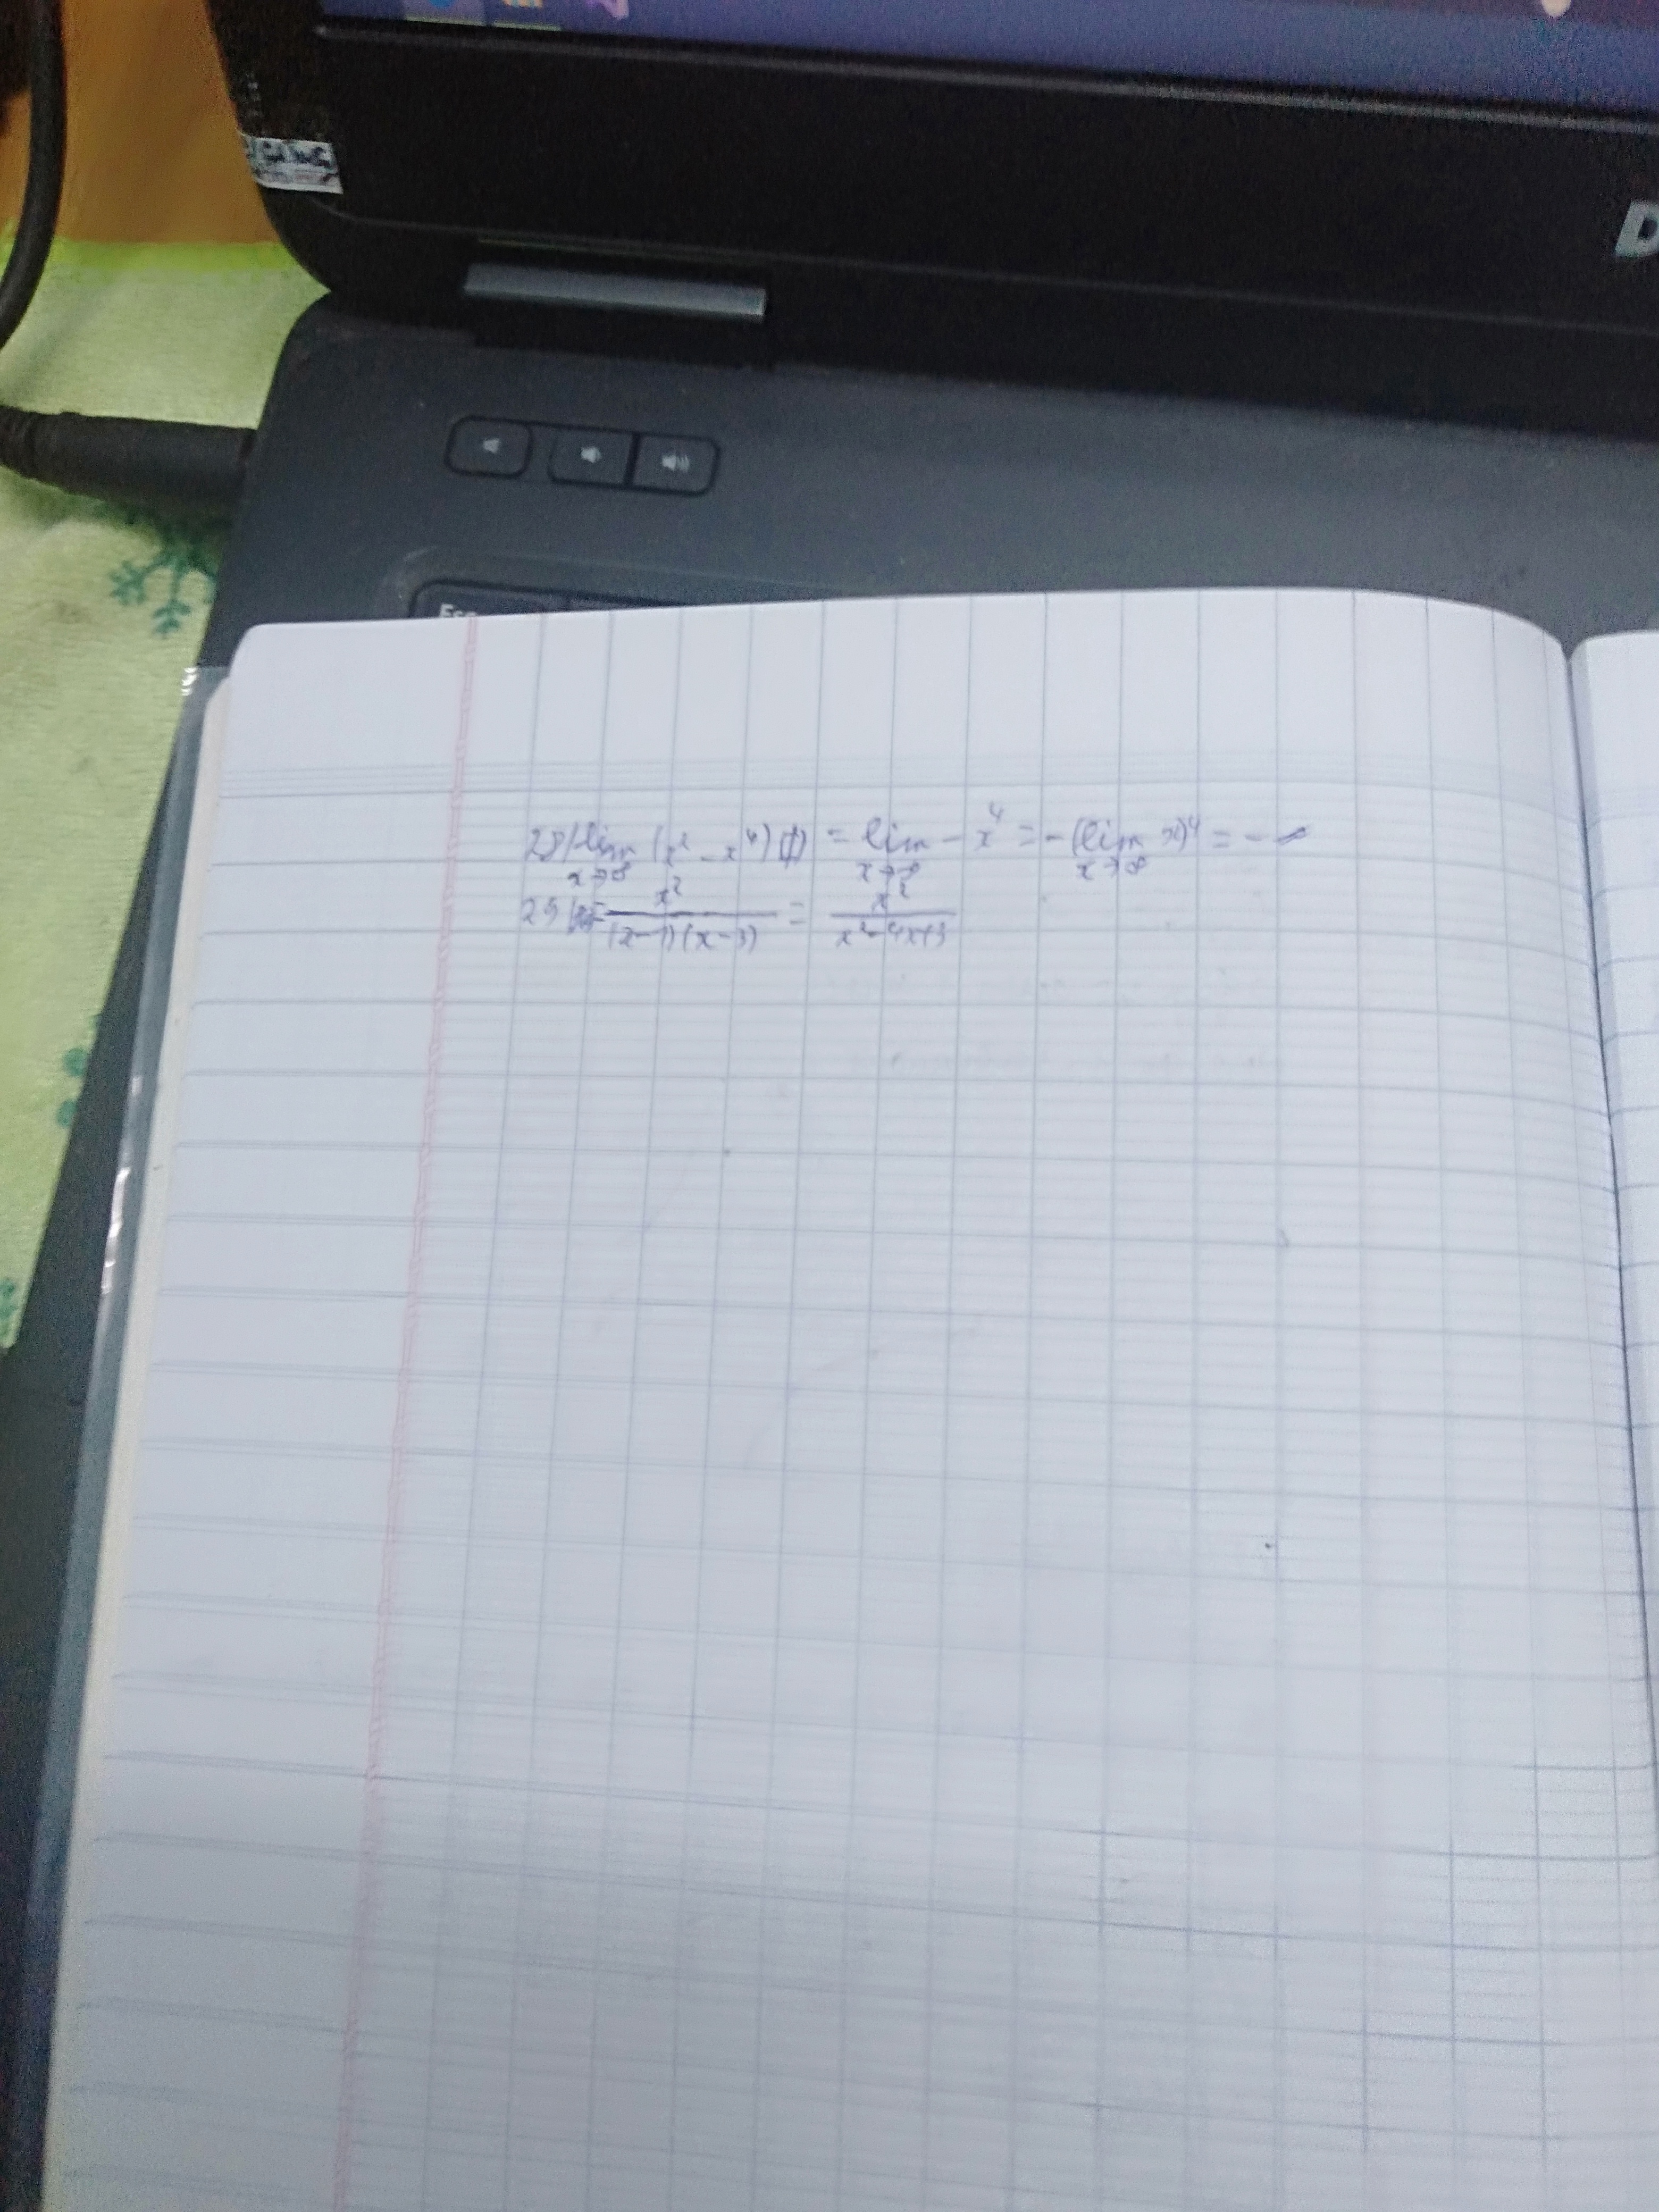 D
Esc
28/ lim x→∞ (x² - x⁴) = lim x→∞ - x⁴ = - (lim x→∞ x)⁴ = - ∞
29/ x²/((x-1)(x-3)) = x²/(x²-4x+3)